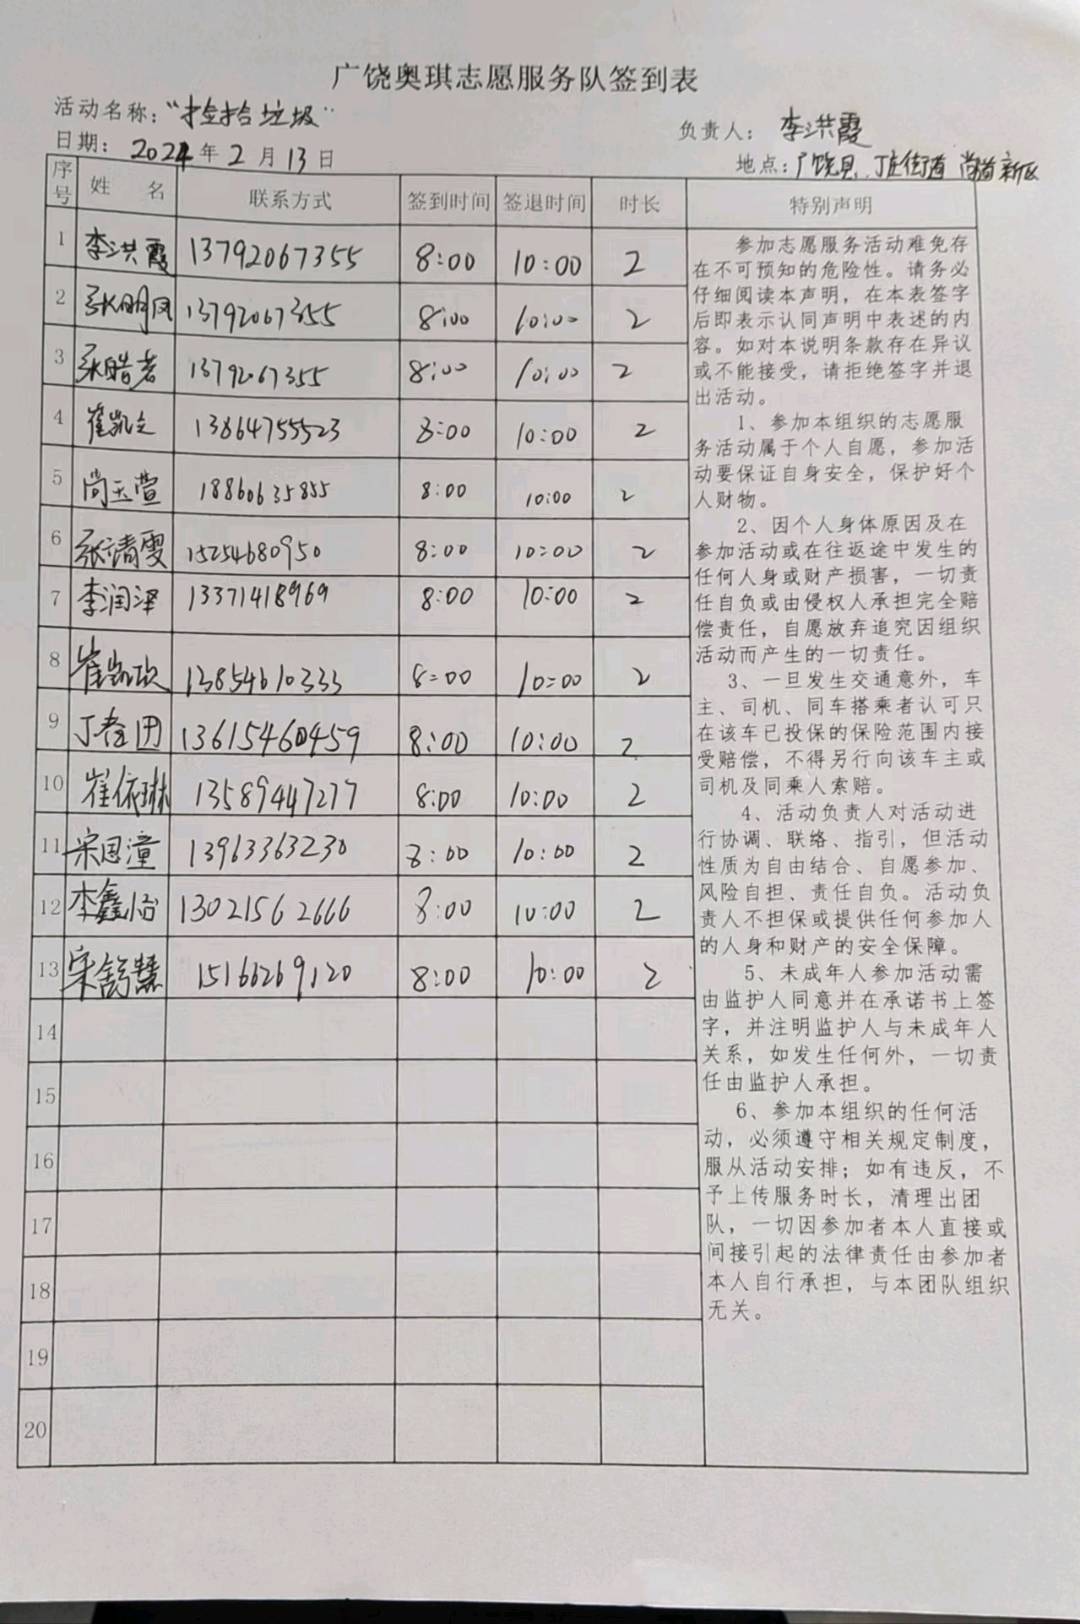 广饶奥琪志愿服务队签到表
活动名称：“捡拾垃圾”
负责人：李洪霞
日期：2024年2月13日
地点：广饶县 丁庄街道 尚道新区
序号 姓名 联系方式 签到时间 签退时间 时长 特别声明
1 李洪霞 13792067355 8:00 10:00 2
2 张明凤 13792067355 8:00 10:00 2
3 张皓岩 13792067355 8:00 10:00 2
4 崔凯之 13864755523 8:00 10:00 2
5 尚玉萱 18860635855 8:00 10:00 2
6 张清雯 15254680950 8:00 10:00 2
7 李润泽 13371418969 8:00 10:00 2
8 崔凯欣 13854610333 8:00 10:00 2
9 丁 13615460459 8:00 10:00 2
10 崔依琳 13589447277 8:00 10:00 2
11 宋恩潼 13963363230 8:00 10:00 2
12 李鑫怡 13021562666 8:00 10:00 2
13 宋舒慧 15166269120 8:00 10:00 2
14
15
16
17
18
19
20
参加志愿服务活动难免存
在不可预知的危险性。请务必
仔细阅读本声明，在本表签字
后即表示认同声明中表述的内
容。如对本说明条款存在异议
或不能接受，请拒绝签字并退
出活动。
1、参加本组织的志愿服
务活动属于个人自愿，参加活
动要保证自身安全，保护好个
人财物。
2、因个人身体原因及在
参加活动或在往返途中发生的
任何人身或财产损害，一切责
任自负或由侵权人承担完全赔
偿责任，自愿放弃追究因组织
活动而产生的一切责任。
3、一旦发生交通意外，车
主、司机、同车搭乘者认可只
在该车已投保的保险范围内接
受赔偿，不得另行向该车主或
司机及同乘人索赔。
4、活动负责人对活动进
行协调、联络、指引，但活动
性质为自由结合、自愿参加、
风险自担、责任自负。活动负
责人不担保或提供任何参加人
的人身和财产的安全保障。
5、未成年人参加活动需
由监护人同意并在承诺书上签
字，并注明监护人与未成年人
关系，如发生任何外，一切责
任由监护人承担。
6、参加本组织的任何活
动，必须遵守相关规定制度，
服从活动安排；如有违反，不
予上传服务时长，清理出团
队，一切因参加者本人直接或
间接引起的法律责任由参加者
本人自行承担，与本团队组织
无关。